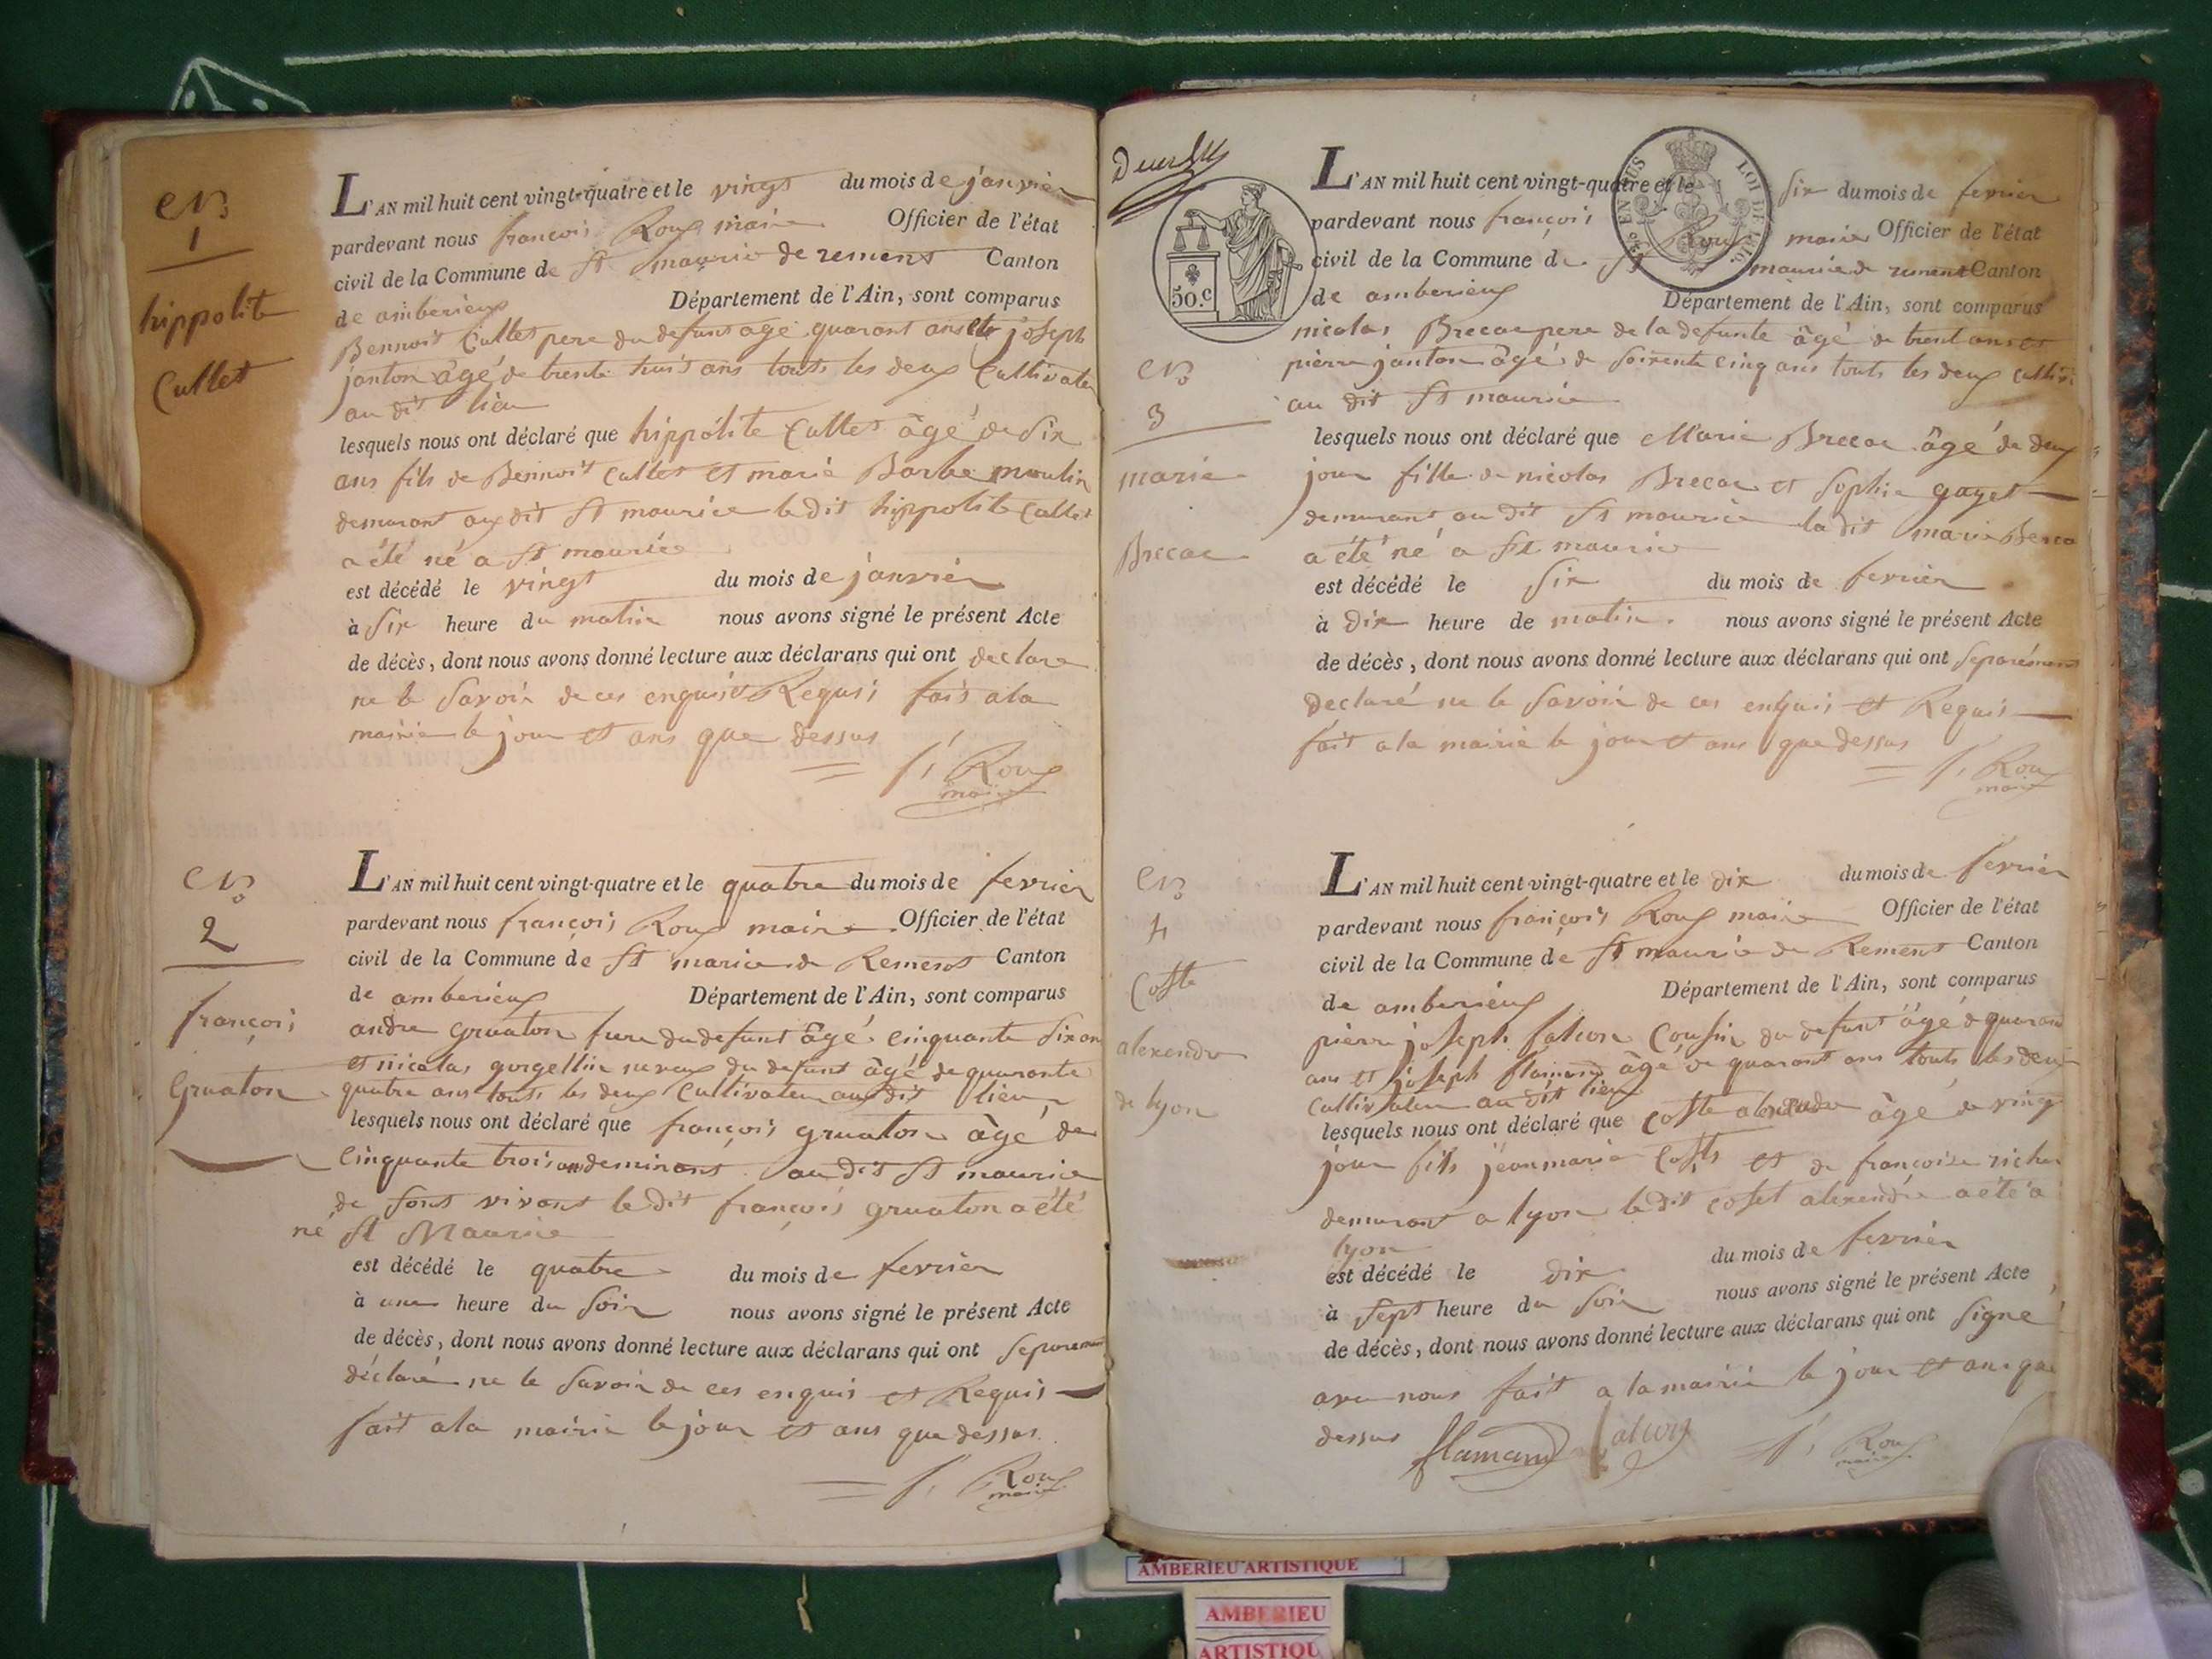 No
1
hippolite
Cullet
L'AN mil huit cent vingt-quatre et le vingt du mois de janvier
pardevant nous françois Roux maire Officier de l'état
civil de la Commune de St maurice de remens Canton
de amberieux Département de l'Ain, sont comparus
Bennoit Cullet pere du defunt age quarant ans et joseph
janton âgé de trente huit ans touts les deux Cultivateu
au dit lieu
lesquels nous ont déclaré que hippolite Cullet âgé de Six
ans fils de Bennoit Cullet et marie Barbe moulin
demurant au dit St maurice le dit hippolite Cullet
a été né a St maurice
est décédé le vingt du mois de janvier
à Six heure du matin nous avons signé le présent Acte
de décès, dont nous avons donné lecture aux déclarans qui ont declare
ne le Savoir de ces enquis et Requis fait a la
mairie le jour et ans que dessus
f, Roux
maire
No
2
françois
Gruaton
L'AN mil huit cent vingt-quatre et le quatre du mois de fevrier
pardevant nous françois Roux maire Officier de l'état
civil de la Commune de St marice de Remens Canton
de amberieux Département de l'Ain, sont comparus
andre Gruaton frere du defunt âgé cinquante Six an
et nicolas gorgellin neveux du defunt âgé de quarante
quatre ans touts les deux Cultivateu au dit lieu
lesquels nous ont déclaré que françois gruaton âgé de
Cinquante trois ans demurant au dit St maurice
de Sont vivant le dit françois gruaton a été
né St Maurice
est décédé le quatre du mois de fevrier
à une heure du Soir nous avons signé le présent Acte
de décès, dont nous avons donné lecture aux déclarans qui ont Separement
déclaré ne le Savoir de ces enquis et Requis
fait a la mairie le jour et ans que dessus
f, Roux
maire
50.C
LOI DE 1816
No
3
marie
Brecac
L'AN mil huit cent vingt-quatre et le Six du mois de fevrier
pardevant nous françois Roux maire Officier de l'état
civil de la Commune de St maurice de remens Canton
de amberieux Département de l'Ain, sont comparus
nicolas Brecac pere de la defunte âgé de trent ans et
pierre janton âgé de Soixente cinq ans touts les deux cultiv
au dit St maurice
lesquels nous ont déclaré que Marie Brecac âgé de deux
jour fille de nicolas Brecac et Sophie gayet
demurant au dit St maurice la dit marie Breca
a été né a St maurice
est décédé le Six du mois de fevrier
à dix heure de matin. nous avons signé le présent Acte
de décès, dont nous avons donné lecture aux déclarans qui ont Separément
declaré ne le Savoir de ces enquis et Requis
fait a la mairie le jour et ans que dessus
f, Roux
maire
No
4
Coste
alexendre
de lyon
L'AN mil huit cent vingt-quatre et le dix du mois de fevrier
pardevant nous françois Roux maire Officier de l'état
civil de la Commune de St maurice de Remens Canton
de amberieux Département de l'Ain, sont comparus
pierre joseph falcon Cousin du defunt âgé de quarant
ans et joseph flamand âgé de quarant ans touts les deux
Cultivateur au dit lieu
lesquels nous ont déclaré que Coste alexendre âgé de ving
jour fils jean marie Coste et de françoise richer
demurant a lyon le dit costet alexendre a été a
lyon
est décédé le dix du mois de fevrier
à Sept heure du Soir nous avons signé le présent Acte
de décès, dont nous avons donné lecture aux déclarans qui ont Signé
avec nous fait a la mairie le jour et ans que
dessus flamand falcon f, Roux
maire
AMBERIEU ARTISTIQUE
AMBERIEU
ARTISTIQU